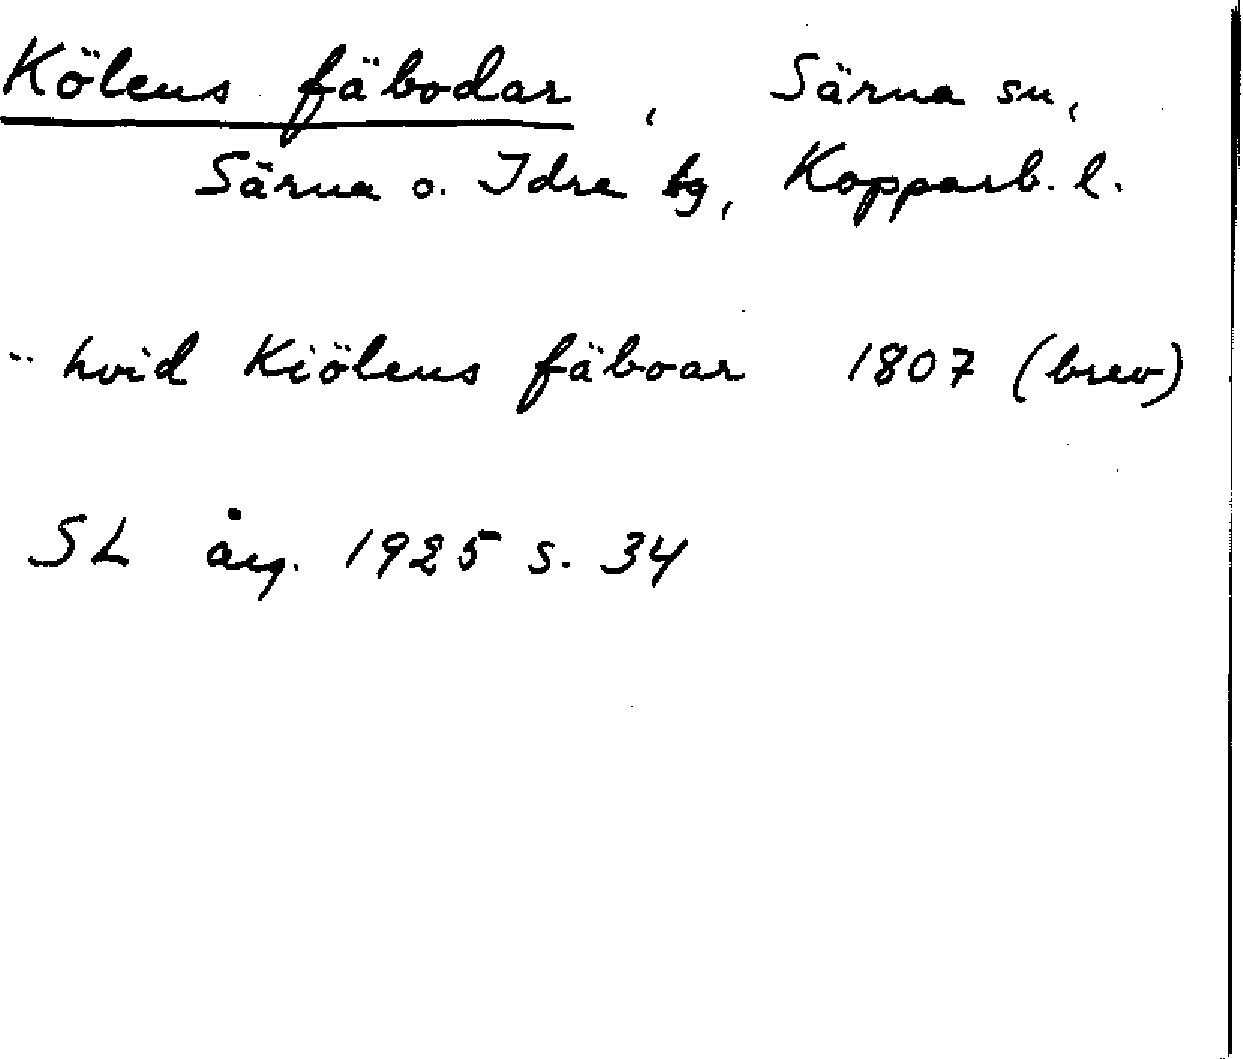 Kölens fäbodar, Särna sn,
Särna o. Idre tg, Kopparb. l.
-- hvid Kiölens fäboar 1807 (brev)
SL årg. 1925 s. 34